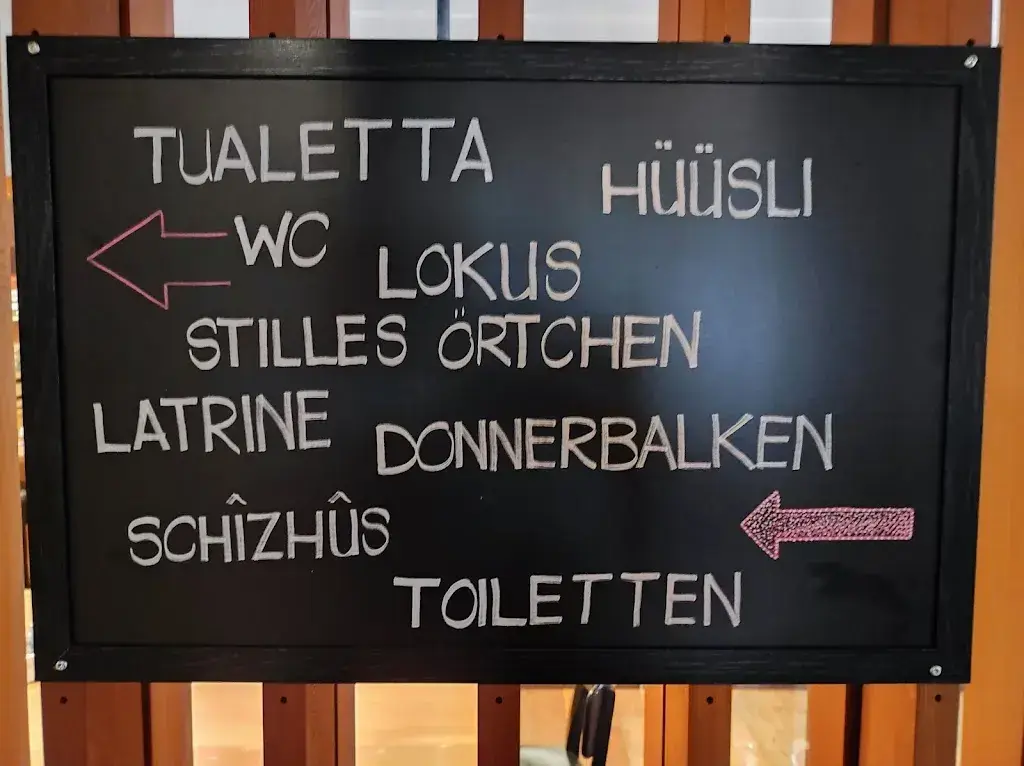 TUALETTA
HÜÜSLI
WC
LOKUS
STILLES ÖRTCHEN
LATRINE
DONNERBALKEN
SCHÎZHÛS
TOILETTEN